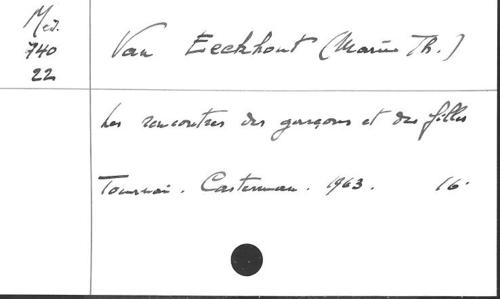 Med.
740
22
Van Eeckhout (Marie Th.)
Les rencontres des garçons et des filles
Tournai. Casterman. 1963. 16°